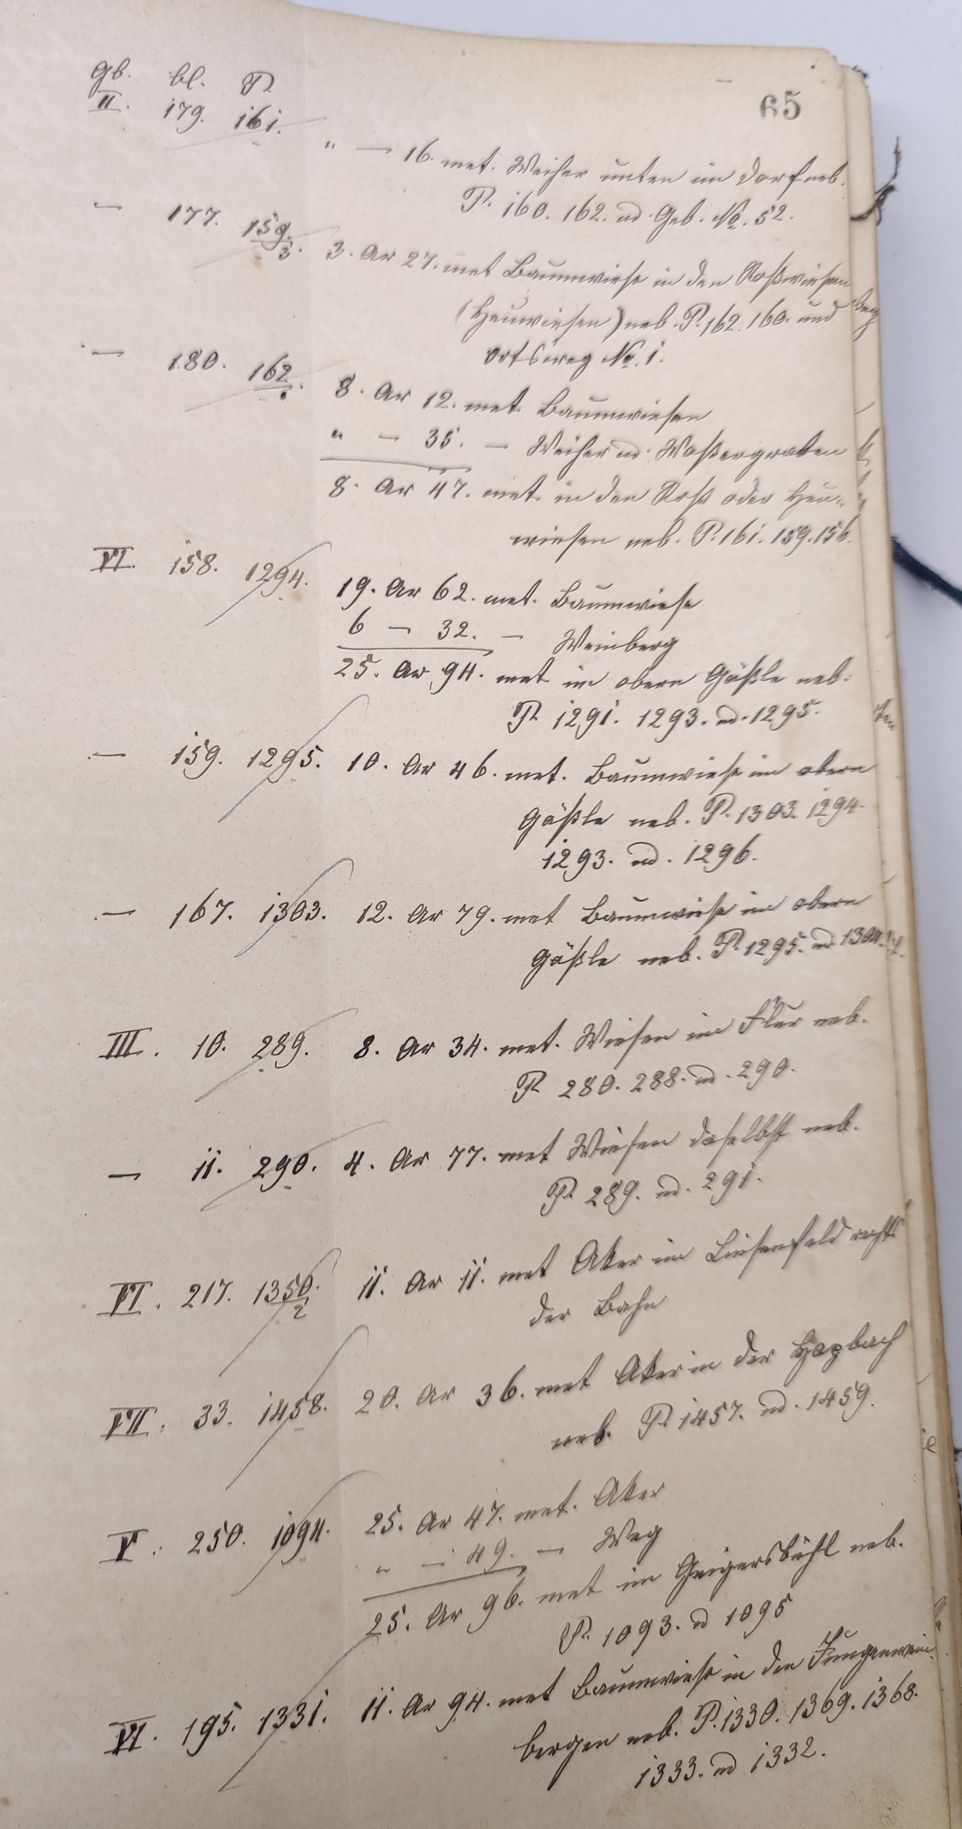 65
Gb. bl. P.
II. 179. 161. „ — 16. met. Weiher unten im Dorf neb.
P. 160. 162. nd. Geb. No. 52.
— 177. 159/3. 3. Ar 27. met Baumwiese in den Roßwiesen
(Heuwiesen) neb. P. 162. 160. und
Ortsweg No. 1.
— 180. 162. 8. Ar 12. met. Baumwiesen
„ — 35. — Weiher nd. Waßergraben
8. Ar 47. met. in den Roß oder Heu-
wiesen neb. P. 161. 159. 156.
VI. 158. 1294. 19. Ar 62. met. Baumwiese
6 — 32. — Weinberg
25. Ar 94. met im obern Gäßle neb.
P. 1291. 1293. nd. 1295.
— 159. 1295. 10. Ar 46. met. Baumwiese im obern
Gäßle neb. P. 1303. 1294.
1293. nd. 1296.
— 167. 1303. 12. Ar 79. met Baumwiese im obern
Gäßle neb. P. 1295. nd 1304.
III. 10. 289. 8. Ar 34. met. Wiesen im Flur neb.
P. 280. 288. nd. 290.
— 11. 290. 4. Ar 77. met Wiesen daselbst neb.
P. 289. nd. 291.
VI. 217. 1350/2. 11. Ar 11. met Aker im Liesenfeld rechts
der Bahn
VII. 33. 1458. 20. Ar 36. met Aker in der Hazbach
neb. P. 1457. nd. 1459.
V. 250. 1094. 25. Ar 47. met. Aker
„ — 49. — Weg
25. Ar 96. met im Geigersbühl neb.
P. 1093. nd 1095
VI. 195. 1331. 11. Ar 94. met Baumwiese in den Jungenwein-
bergen neb. P. 1330. 1369. 1368.
1333. nd 1332.